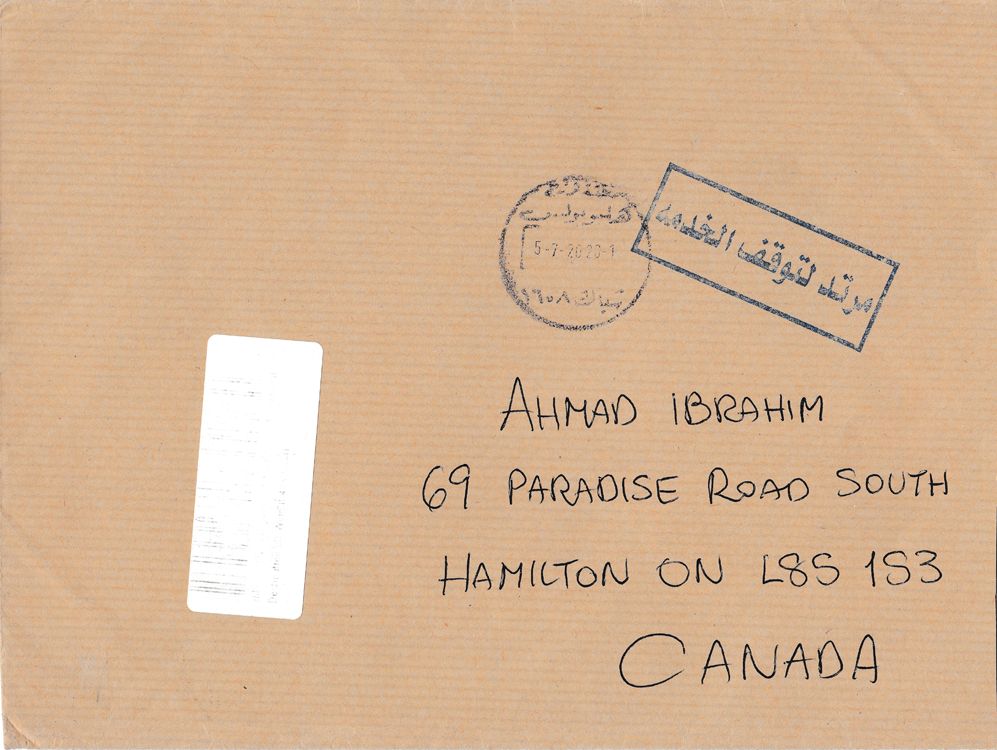 هليوبوليس
5-7-2020-1
شباك ١٦٥٨
مرتد لتوقف الخدمة
AHMAD IBRAHIM
69 PARADISE ROAD SOUTH
HAMILTON ON L8S 1S3
CANADA